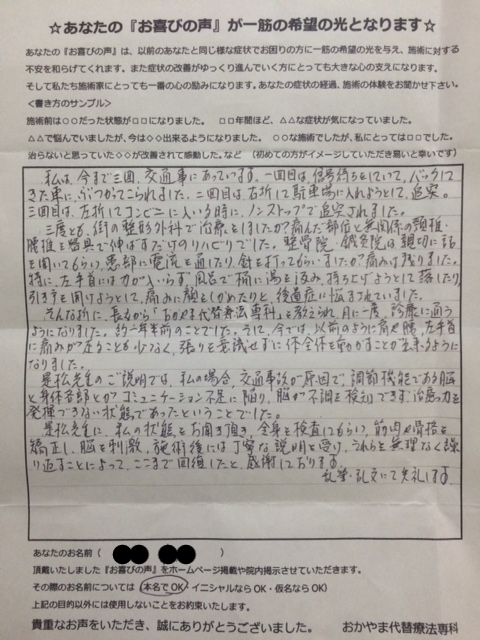 ☆あなたの『お喜びの声』が一筋の希望の光となります☆
あなたの『お喜びの声』は、以前のあなたと同じ様な症状でお困りの方に一筋の希望の光を与え、施術に対する
不安を和らげてくれます。また症状の改善がゆっくり進んでいく方にとっても大きな心の支えになります。
そして私たち施術家にとっても一番の心の励みになります。あなたの症状の経過、施術の体験をお聞かせ下さい。
<書き方のサンプル>
施術前は○○だった状態が□□になりました。 □□年間ほど、△△な症状が気になっていました。
△△で悩んでいましたが、今は◇◇出来るようになりました。 ○○な施術でしたが、私にとっては□□でした。
治らないと思っていた◇◇が改善されて感動した。など (初めての方がイメージしていただき易いと幸いです)
私は、今まで三回、交通事にあっています。一回目は、信号待ちをしていて、バックして
きた車に、ぶつかってこられました。二回目は、右折して駐車場に入れようとして、追突。
三回目は、左折してコンビニに入いる時に、ノンストップで追突されました。
三度とも、街の整形外科で治療をしましたが痛んだ部位と無関係の頚椎・
腰椎を器具で伸ばすだけのリハビリでした。整骨院、鍼灸院は親切に話
を聞いてもらい、患部に電流を通したり、針を打ってもらいましたが痛みは残りました。
特に、左手首には力が入いらず、風呂で桶に湯を汲み、持ち上げようとして落したり、
引き戸を開けようとして、痛みに顔をしかめたりと、後遺症に悩まされていました。
そんな折に、長女から「おかやま代替療法専科」を教えられ、月に二度、診療に通う
ようになりました。約一年半前のことでした。そして、今では、以前のように肩や腰、左手首
に痛みが走ることも少なく、張りを意識せずに体全体を動かすことが出来るように
なりました。
是松先生のご説明では、私の場合、交通事故が原因で、調節機能である脳
と身体各部とがコミュニケーション不足に陥り、脳が不調を検知できず、治癒力を
発揮できない状態であったということでした。
是松先生に、私の状態をお聞き頂き、全身を検査してもらい、筋肉や骨格を
矯正し、脳を刺激、施術後には丁寧な説明を受け、これらを無理なく繰
り返すことによって、ここまで回復したと、感謝しております。
乱筆・乱文にて失礼します。
あなたのお名前( )
頂戴いたしました『お喜びの声』をホームページ掲載や院内掲示させていただきます。
その際のお名前については(本名でOK・イニシャルならOK・仮名ならOK)
上記の目的以外には使用しないことをお約束いたします。
貴重なお声をいただき、誠にありがとうございました。 おかやま代替療法専科